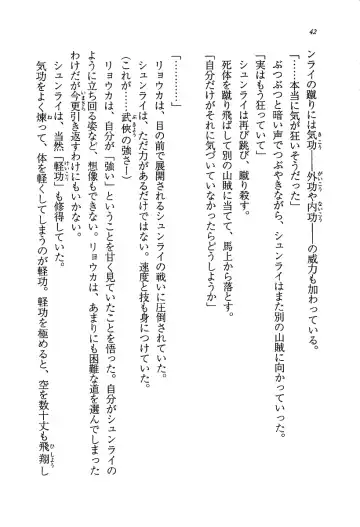 42
ンライの蹴りには気功——外功や内功——の威力も加わっている。
「……本当に気が狂いそうだった」
ぶつぶつと暗い声でつぶやきながら、シュンライはまた別の山賊に向かっていった。
「実はもう狂っていて」
シュンライは再び跳び、蹴り殺す。
死体を蹴り飛ばして別の山賊に当てて、馬上から落とす。
「自分だけがそれに気づいていなかったらどうしようか」
「…………」
リョウカは、目の前で展開されるシュンライの戦いに圧倒されていた。
シュンライは、ただ力があるだけではない。速度と技も身につけていた。
（これが……武侠の強さ——）
リョウカは、自分が「強い」ということを甘く見ていたことを悟った。自分がシュンライの
ように立ち回る姿など、想像もできない。リョウカは、あまりにも困難な道を選んでしまった
わけだが今更引き返すわけにもいかない。
シュンライは、当然「軽功」も修得していた。
気功をよく煉って、体を軽くしてしまうのが軽功。軽功を極めると、空を数十丈も飛翔し